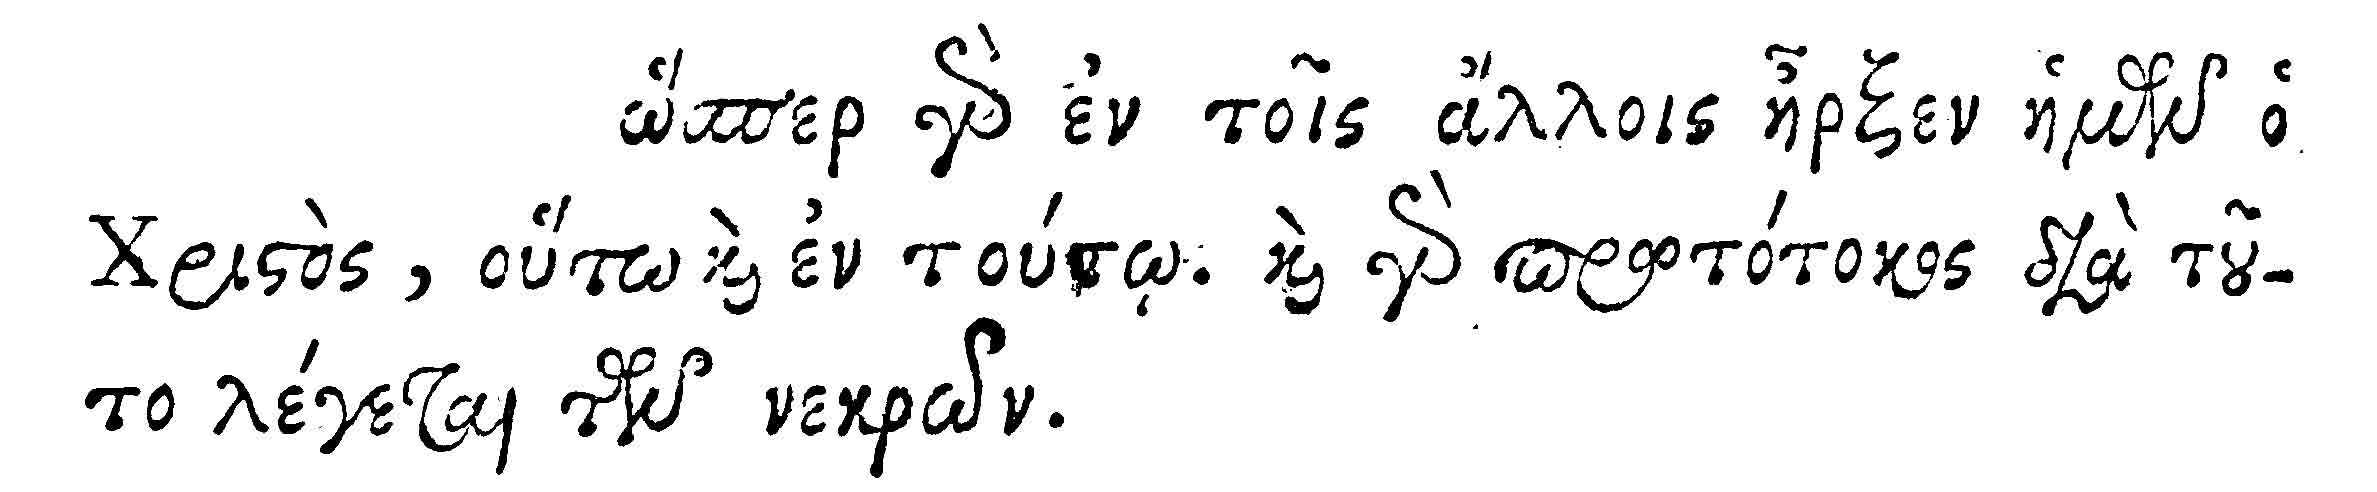 ὥσπερ γὰρ ἐν τοῖς ἄλλοις ἦρξεν ἡμῶν ὁ
Χριστὸς, οὕτω καὶ ἐν τούτῳ. καὶ γὰρ πρωτότοκος διὰ τοῦ-
το λέγεται τῶν νεκρῶν.